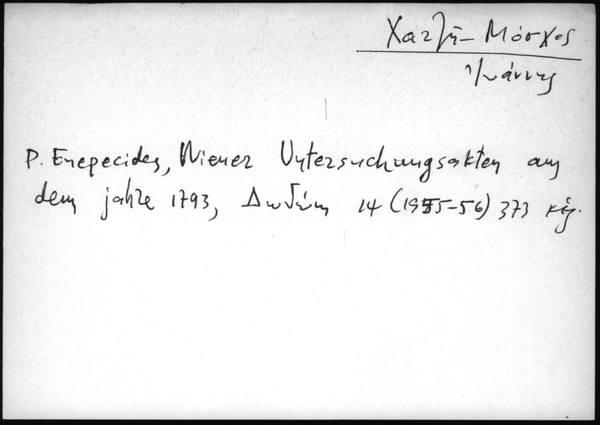 Χατζῆ-Μόσχος
Ἰωάννης
P. Enepecides, Wiener Untersuchungsakten aus
dem jahre 1793, Δωδώνη 14 (1955-56) 373 κἑξ.